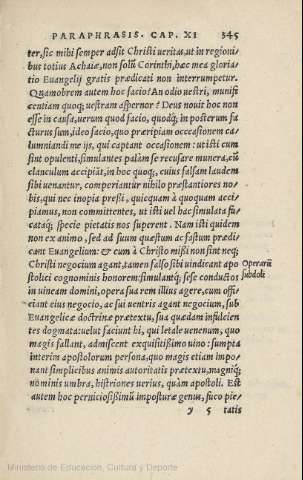 PARAPHRASIS. CAP. XI 345
ter, sic mihi semper adsit Christi veritas, ut in regioni⸗
bus totius Achaiæ, non solũ Corinthi, hæc mea gloria⸗
tio Euangelij gratis prædicati non interrumpetur.
Quamobrem autem hoc facio? An odio uestri, munifi
centiam quoq; uestram aspernor? Deus nouit hoc non
esse in causa, uerum quod facio, quodq́; in posterum fa
cturus sum, ideo facio, quo præripiam occasionem ca⸗
lumniandi me ijs, qui captant occasionem: ut isti cum
sint opulenti, simulantes palàm se recusare munera, cũ
clanculum accipiãt, in hoc quoq;, cuius falsam laudem
sibi uenantur, comperiantur nihilo præstantiores no⸗
bis, qui nec inopia preßi, quicquam à quoquam acci⸗
piamus, non committentes, ut isti uel hac simulata fu⸗
cataq́; specie pietatis nos superent. Nam isti quidem
non ex animo, sed ad suum quæstum ac fastum prædi⸗
cant Euangelium: & cum à Christo mißi non sint neq;
Christi negocium agant, tamen falso sibi uindicant apo
stolici cognominis honorem: simulantq́; sese conductos
in uineam domini, opera sua rem illius agere, cum offi⸗
ciant eius negocio, ac sui uentris agant negocium, sub
Euangelicæ doctrinæ prætextu, sua quædam inculcan
tes dogmata: uelut faciunt hi, qui letale uenenum, quo
magis fallant, admiscent exquisitißimo uino: sumpta
interim apostolorum persona, quo magis etiam impo⸗
nant simplicibus animis autoritatis prætextu, magniq́;
nominis umbra, histriones uerius, quàm apostoli. Est
autem hoc perniciosißimũ imposturæ genus, fuco pie⸗
y 5 tatis
Operarii
subdoli
Ministerio de Educación, Cultura y Deporte